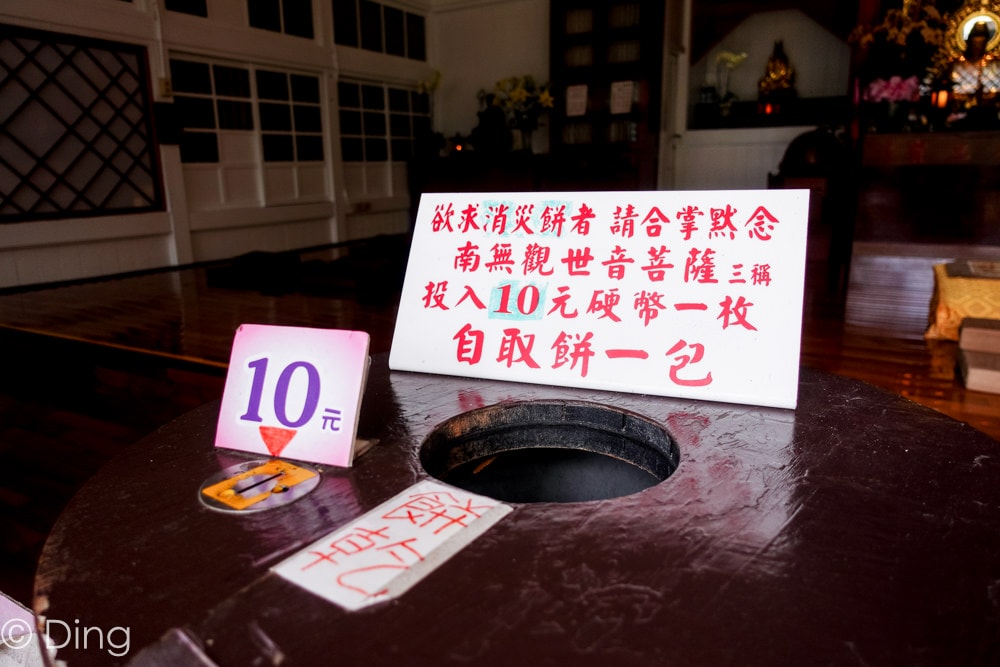 欲求消災餅者 請合掌默念
南無觀世音菩薩三稱
投入10元硬幣一枚
自取餅一包
10元
© Ding